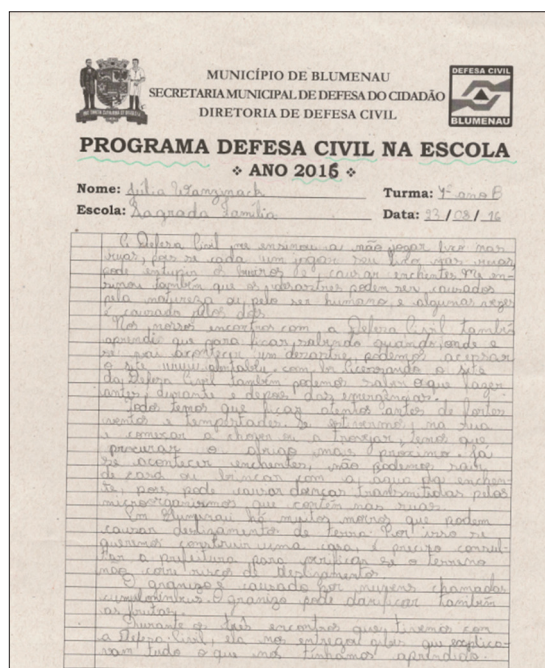 MUNICÍPIO DE BLUMENAU
SECRETARIA MUNICIPAL DE DEFESA DO CIDADÃO
DIRETORIA DE DEFESA CIVIL
DEFESA CIVIL
BLUMENAU
PROGRAMA DEFESA CIVIL NA ESCOLA
❖ ANO 2016 ❖
Nome: Júlia Turma: 4º ano B
Escola: Sagrada Família Data: 23/08/16
A Defesa Civil me ensinou a não jogar lixo nas
ruas, pois se cada um jogar seu lixo nas ruas,
pode entupir os bueiros e causar enchentes. Me en-
sinou também que os desastres podem ser causados
pela natureza ou pelo ser humano, e algumas vezes
é causado pelos dois.
Nos nossos encontros com a Defesa Civil também
aprendi que para ficar sabendo quando, onde e
se vai acontecer um desastre, podemos acessar
o site www.alertablu.com.br acessando o site
da Defesa Civil também podemos saber o que fazer
antes, durante e depois das emergências.
Todos temos que ficar atentos antes de fortes
ventos e tempestades. Se estivermos na rua
e começar a chover ou a trovejar, temos que
procurar o abrigo mais próximo. Já
se acontecer enchentes, não podemos sair
de casa ou brincar com a água da enchen-
te, pois pode causar doenças transmitidas pelos
microorganismos que contém nas ruas.
Em Blumenau há muitos morros que podem
causar deslizamentos de terra. Por isso se
queremos construir uma casa, é preciso consul-
tar a prefeitura para verificar se o terreno
não corre riscos de deslizamentos.
O granizo é causado por nuvens chamadas
O granizo pode danificar também
as frutas.
Durante os três encontros que tivemos com
a Defesa Civil, ela nos entregou que explica-
vam tudo o que nós tínhamos aprendido.